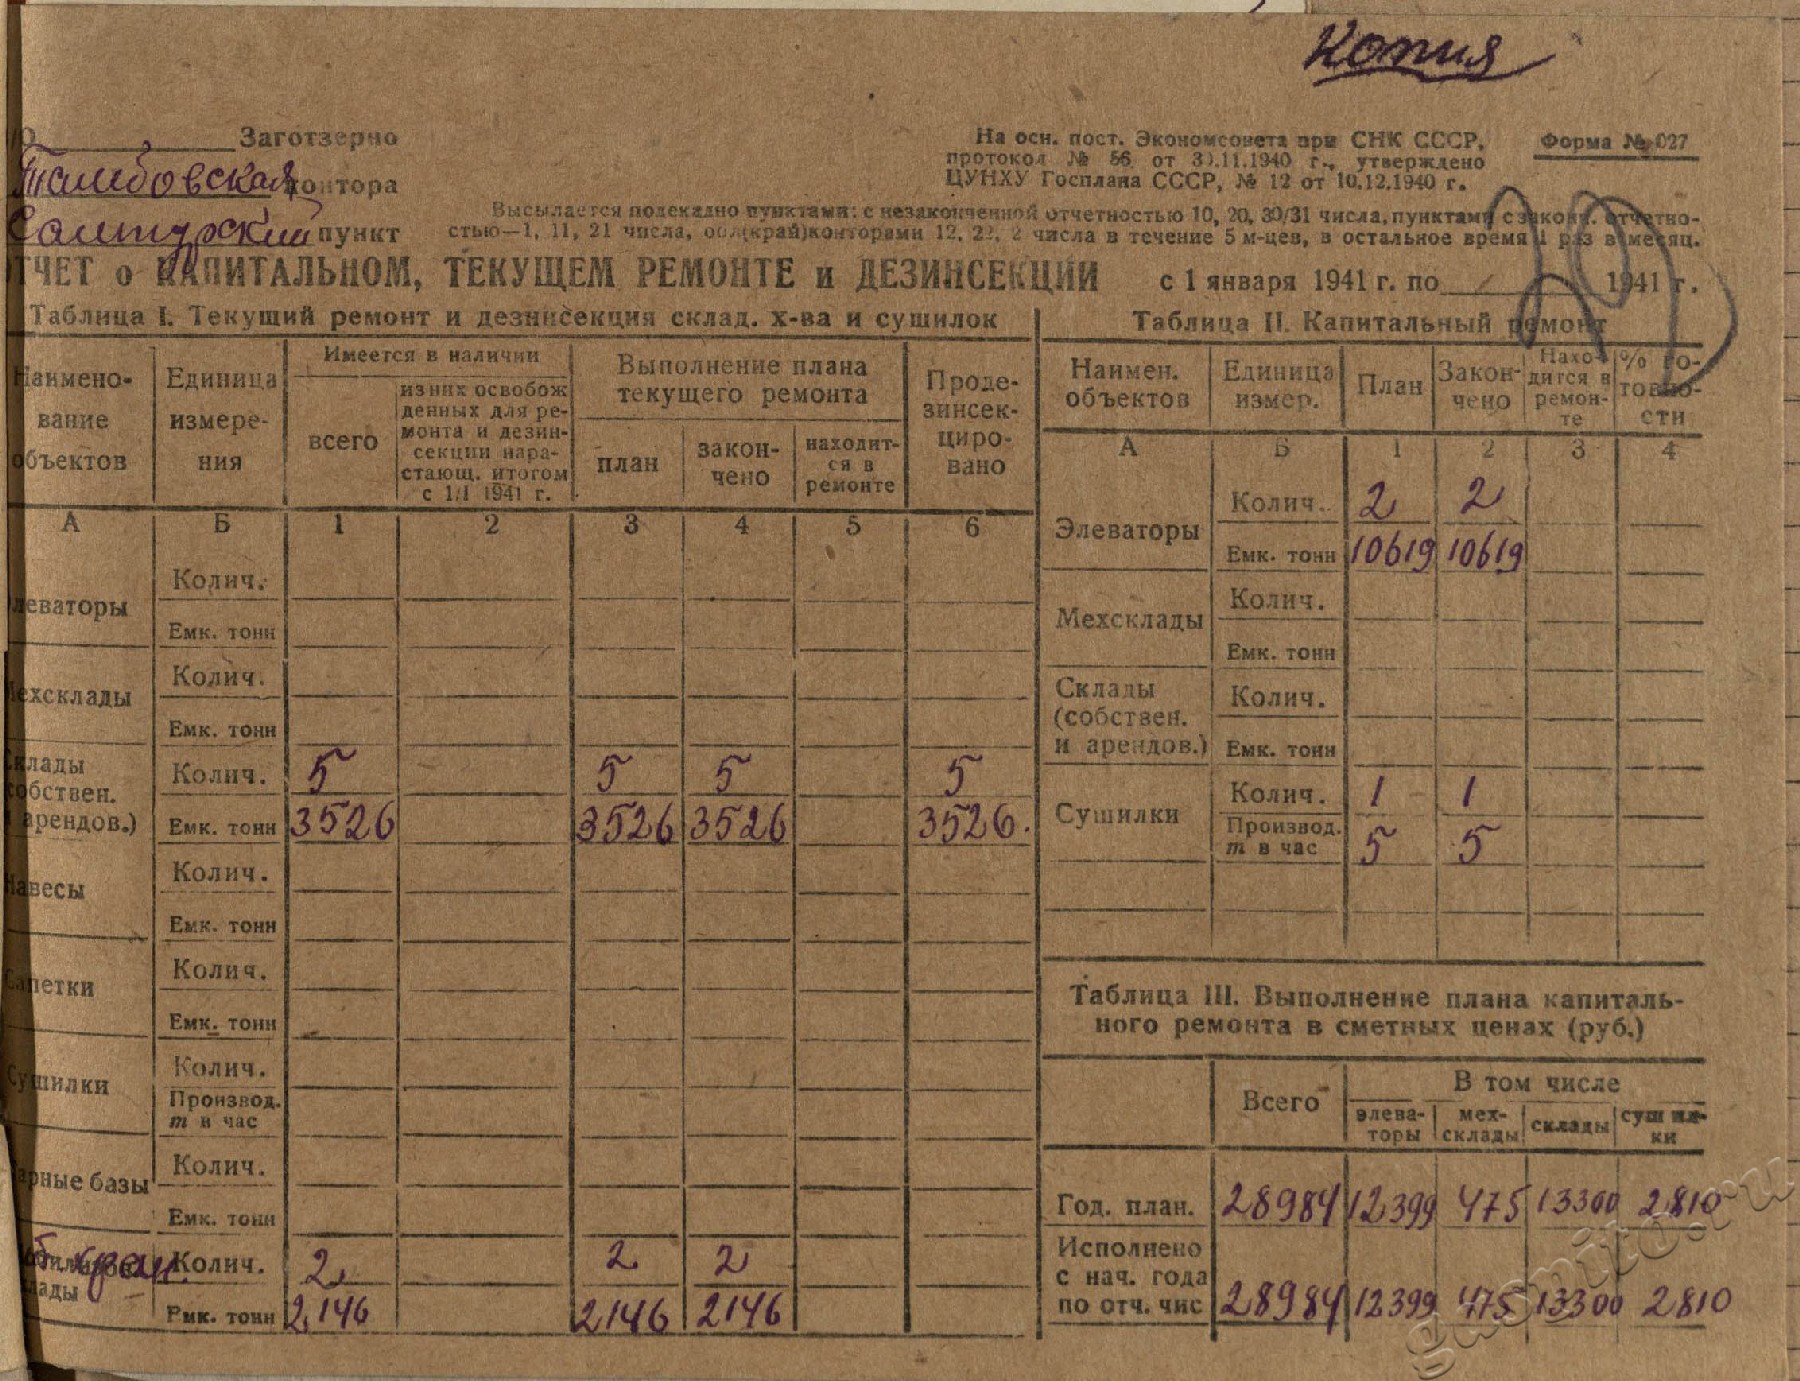 Копия
Заготзерно
Тамбовская контора
Сампурский пункт
На осн. пост. Экономсовета при СНК СССР,
протокол № 56 от 30.11.1940 г., утверждено
ЦУНХУ Госплана СССР, № 12 от 10.12.1940 г.
Форма № 027
Высылается подекадно пунктами: с незаконченной отчетностью 10, 20, 30/31 числа, пунктами с законч. отчетно-
стью—1, 11, 21 числа, обл(край)конторами 12, 22, 2 числа в течение 5 м-цев, в остальное время 1 раз в месяц.
ОТЧЕТ о КАПИТАЛЬНОМ, ТЕКУЩЕМ РЕМОНТЕ и ДЕЗИНСЕКЦИИ с 1 января 1941 г. по 1941 г.
Таблица I. Текущий ремонт и дезинсекция склад. х-ва и сушилок
Наимено-
вание
объектов
Единица
измере-
ния
Имеется в наличии
всего
из них освобож
денных для ре-
монта и дезин-
секции нара-
стающ. итогом
с 1/I 1941 г.
Выполнение плана
текущего ремонта
план
закон-
чено
находит-
ся в
ремонте
Проде-
зинсек-
циро-
вано
А Б 1 2 3 4 5 6
Элеваторы
Колич.
Емк. тонн
Мехсклады
Колич.
Емк. тонн
Склады
(собствен.
и арендов.)
Колич. 5 5 5 5
Емк. тонн 3526 3526 3526 3526.
Навесы
Колич.
Емк. тонн
Сапетки
Колич.
Емк. тонн
Сушилки
Колич.
Производ.
т в час
Тарные базы
Колич.
Емк. тонн
Колич. 2 2 2
Емк. тонн 2146 2146 2146
Таблица II. Капитальный ремонт
Наимен.
объектов
Единица
измер.
План
Закон-
чено
Нахо-
дится в
ремон-
те
% го-
товно-
сти
А Б 1 2 3 4
Элеваторы
Колич. 2 2
Емк. тонн 10619 10619
Мехсклады
Колич.
Емк. тонн
Склады
(собствен.
и арендов.)
Колич.
Емк. тонн
Сушилки
Колич. 1 1
Производ.
т в час 5 5
Таблица III. Выполнение плана капиталь-
ного ремонта в сметных ценах (руб.)
Всего
В том числе
элева-
торы
мех-
склады
склады
сушил-
ки
Год. план. 28984 12399 475 13300 2810
Исполнено
с нач. года
по отч. чис 28984 12399 475 13300 2810
gusmito.ru